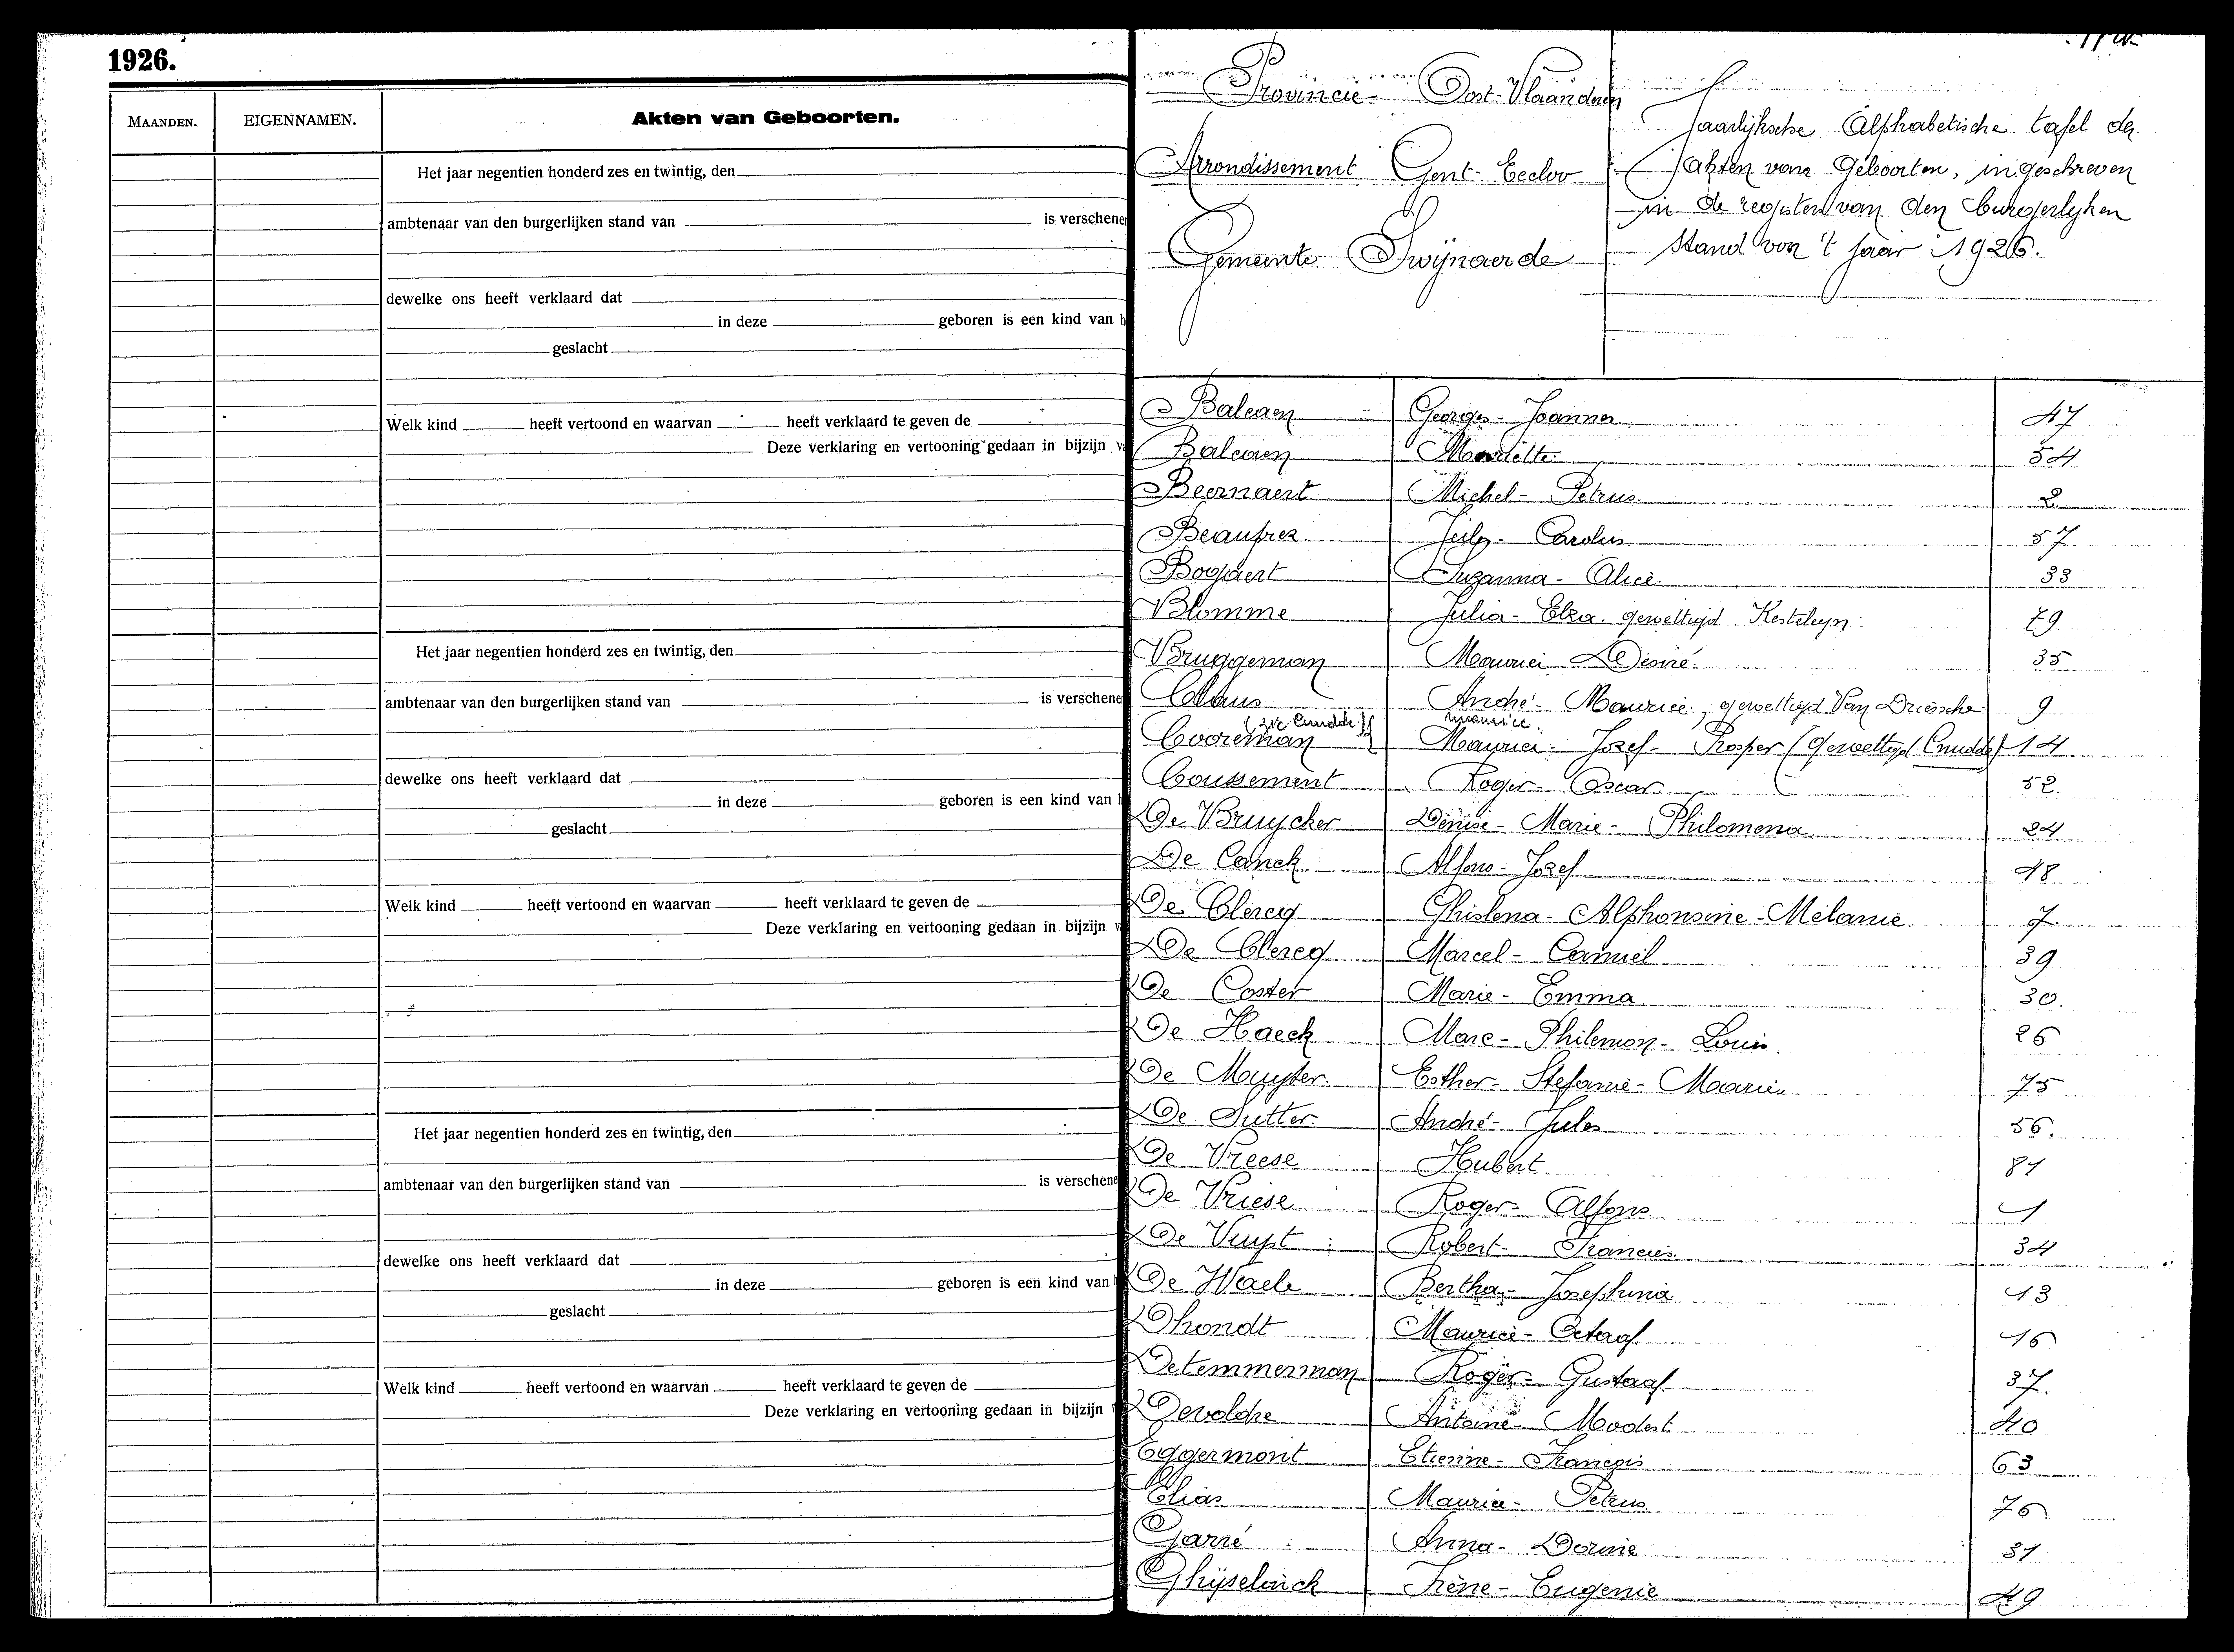 1926.
MAANDEN. EIGENNAMEN. Akten van Geboorten.
Het jaar negentien honderd zes en twintig, den
ambtenaar van den burgerlijken stand van is verschene
dewelke ons heeft verklaard dat
in deze geboren is een kind van h
geslacht
Welk kind heeft vertoond en waarvan heeft verklaard te geven de
Deze verklaring en vertooning gedaan in bijzijn v
Het jaar negentien honderd zes en twintig, den
ambtenaar van den burgerlijken stand van is verschene
dewelke ons heeft verklaard dat
in deze geboren is een kind van h
geslacht
Welk kind heeft vertoond en waarvan heeft verklaard te geven de
Deze verklaring en vertooning gedaan in bijzijn v
Het jaar negentien honderd zes en twintig, den
ambtenaar van den burgerlijken stand van is verschene
dewelke ons heeft verklaard dat
in deze geboren is een kind van
geslacht
Welk kind heeft vertoond en waarvan heeft verklaard te geven de
Deze verklaring en vertooning gedaan in bijzijn
Provincie Oost-Vlaanderen
Arrondissement Gent-Eecloo
Gemeente Swijnaerde
Jaarlijksche Alphabetische tafel der
akten van Geboorten, ingeschreven
in de registers van den burgerlyken
stand van 't jaar 1926.
Balcaen Georges-Joannes 47
Balcaen Mariëtte 54
Beernaert Michel-Petrus 2
Beaufrez Carolus 57
Bogaert Suzanna-Alice 33
Blomme Julia-Elza gewettijd Kesteleyn 79
Bruggeman Maurice Désiré 35
Claus André-Maurice, gewettijd Van Driessche 9
(zie Cnudde) Maurice
Cooreman Maurice-Jozef-Prosper (gewettijd Cnudde) 14
Coussement Roger-Oscar 52.
De Bruycker Denise-Marie-Philomena 24
De Canck Alfons-Jozef 48
De Clercq Ghislena-Alphonsine-Melanie 7
De Clercq Marcel-Camiel 39
De Coster Marie-Emma 30.
De Haeck Marc-Philemon-Louis 26
De Muyter Esther-Stefanie-Maarie 75
De Sutter André-Jules 56.
De Vreese Hubert 81
De Vriese Roger-Alfons 1
De Vuyst Robert-Francies 34
De Waele Bertha-Josephina 13
Dhondt Maurice-Octaaf 16
Detemmerman Roger-Gustaaf 37.
Devolder Antoine-Modest 40
Eggermont Etienne-François 63
Elias Maurice-Petrus 76
Garré Anna-Dorine 31
Ghijselinck Irène-Eugenie 49